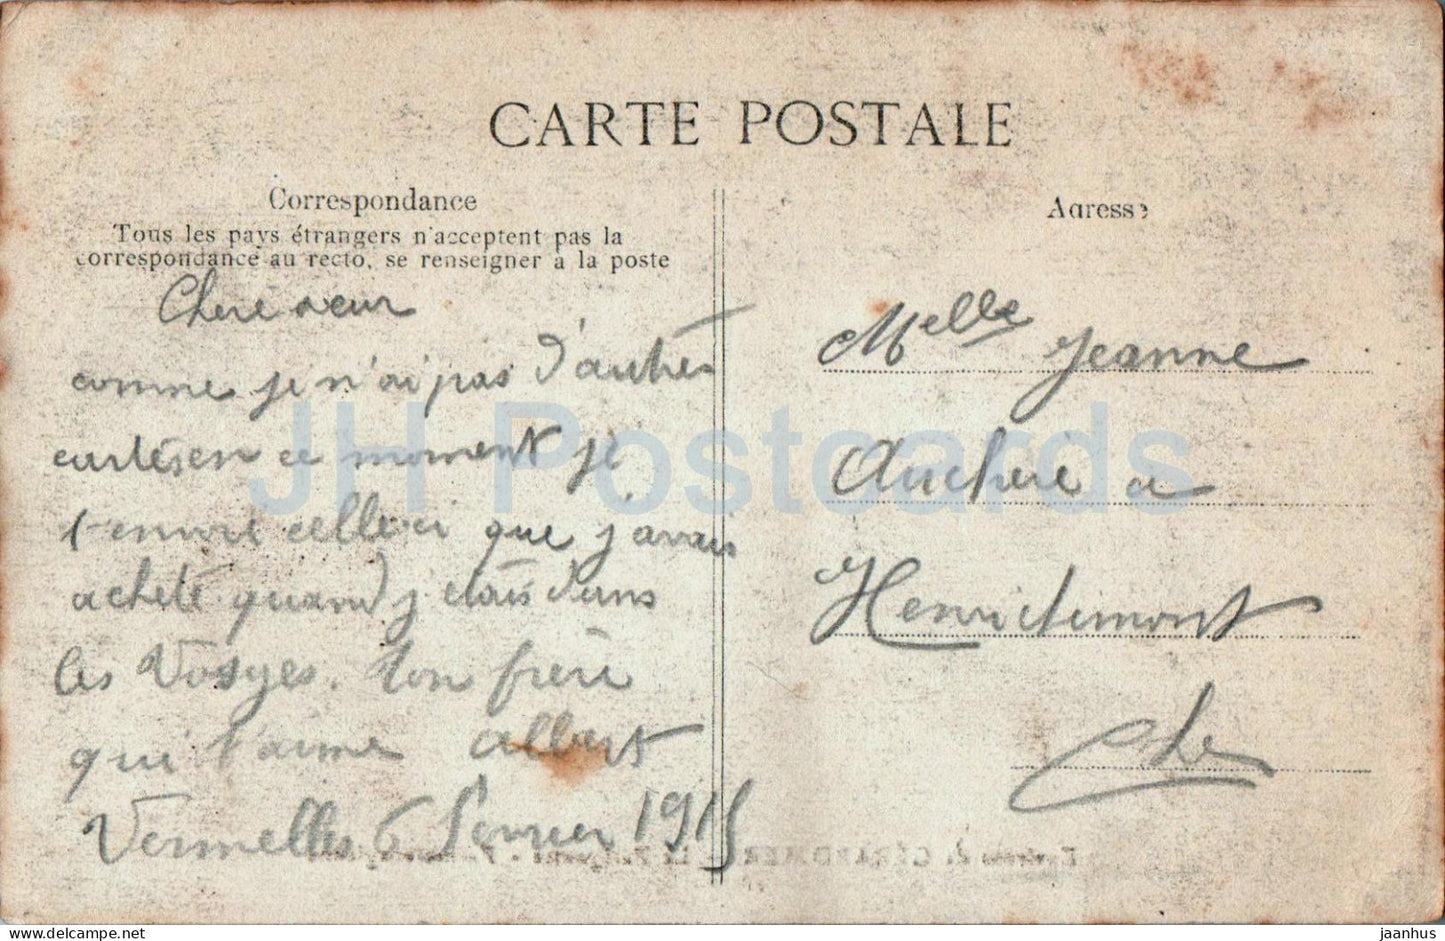 CARTE POSTALE
Correspondance
Tous les pays étrangers n'acceptent pas la
correspondance au recto, se renseigner à la poste
Chere sœur
comme je n'ai pas d'autres
cartes en ce moment je
t'envoie celle ci que j'avais
acheté quand j'etais dans
les Vosges. ton frère
qui t'aime Albert
Vermelles 6 Fevrier 1915
Adresse
Melle Jeanne
Auchere a
Henrichemont
Cher
JH Postcards
delcampe.net
jaanhus